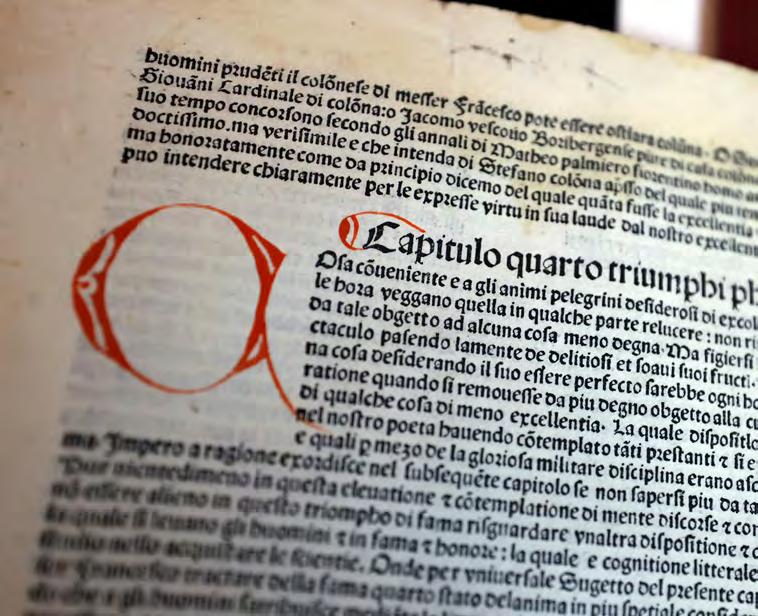 huomini prudēti il colōnese di messer Frācesco pote essere ostiara colūna. O
Giouāni Cardinale di colōna: o Jacomo vescouo Boribergense pure di casa colōne
suo tempo concorsono secondo gli annali di Matheo palmiero fiorentino homo
doctissimo. ma verisimile e che intenda di Stefano colōna apsso del quale piu
ma honoratamente come da principio dicemo del quale quāta fusse la excellentia
puo intendere chiaramente per le expresse virtu in sua laude dal nostro
Capitulo quarto triumphi
Q
Osa cōueniente e a gli animi pelegrini desiderosi di
le hora veggano quella in qualche parte relucere: non
da tale obgetto ad alcuna cosa meno degna. Ma figiersi
ctaculo pasendo lamente de delitiosi et soaui suoi fructi.
na cosa desiderando il suo essere perfecto sarebbe ogni
ratione quando si remouesse da piu degno obgetto alla
di qualche cosa di meno excellentia. La quale
nel nostro poeta hauendo cōtemplato tāti prestanti ⁊ si e
e quali p mezo de la gloriosa militare disciplina erano
ma. Impero a ragione exordisce nel subsequēte capitolo se non sapersi piu da
Pur nientedimeno in questa eleuatione ⁊ cōtemplatione di mente discorse ⁊
nō essere alieno in questo triompho di fama risguardare vnaltra dispositione ⁊
la quale si leuano gli huomini ⁊ in fama ⁊ honore: la quale e cognitione litterale
studio nello acquistare le scientie. Onde per vniuersale Sugetto del presente
ser Francesco tractare della fama quarto stato delanima in piu speciale
che a gli huomini